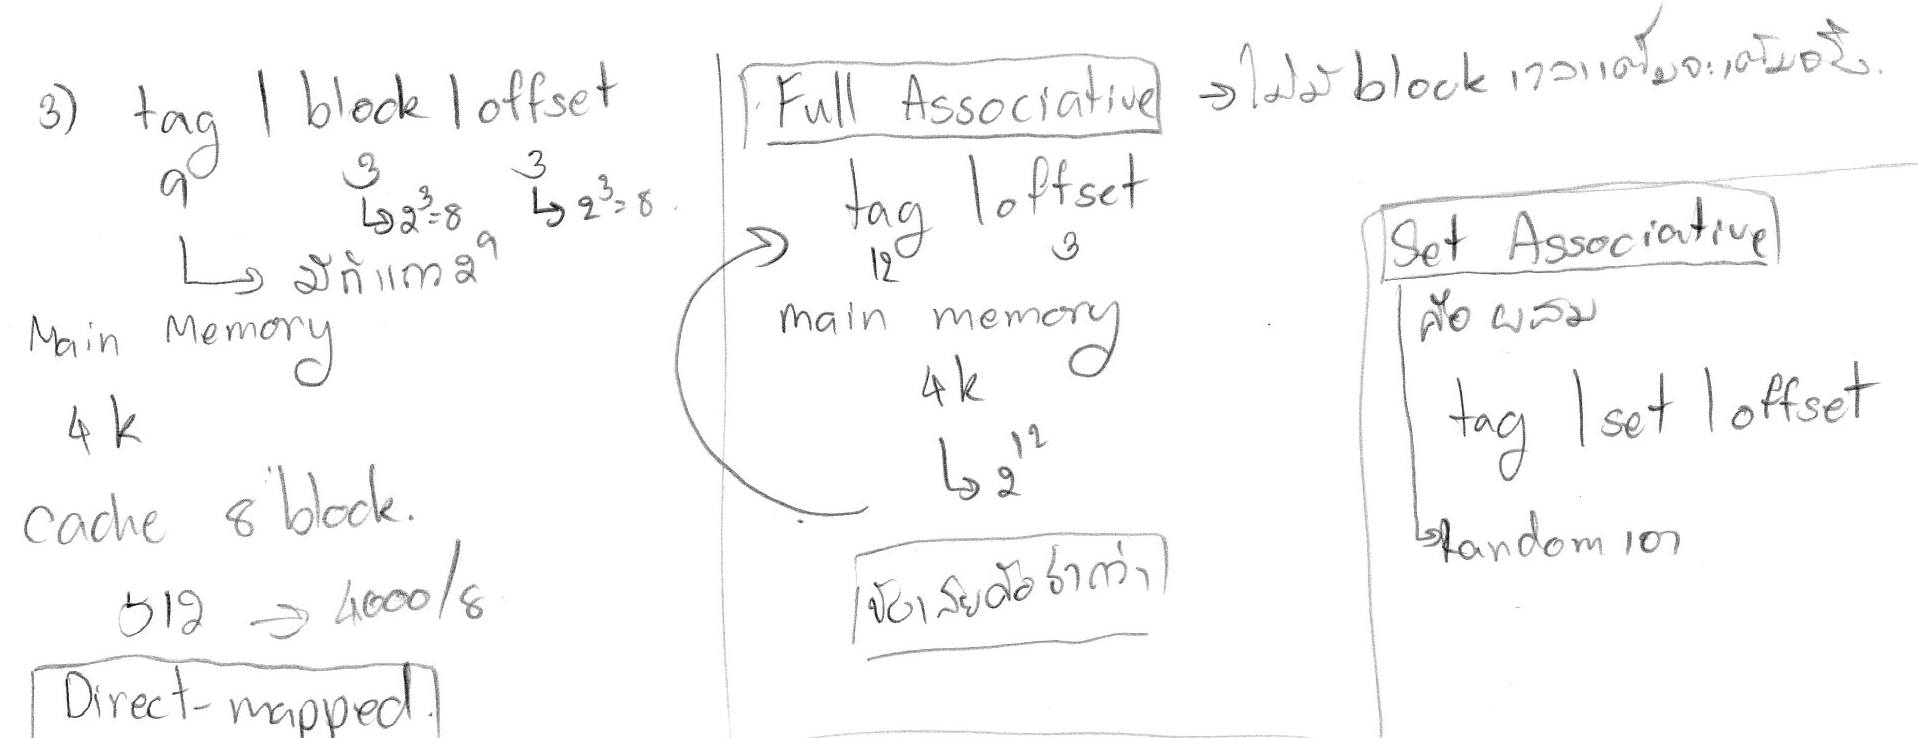 3) tag | block | offset
9 3 3
↳ 2³=8 ↳ 2³=8
↳ มีกี่แถว 2⁹
Main Memory
4k
cache 8 block.
512 → 4000/8
Direct-mapped
Full Associative → ไม่มี block
tag | offset
12 3
main memory
4k
↳ 2¹²
ข้อเสียคือช้ากว่า
Set Associative
คือ ผสม
tag | set | offset
↳ Random เอา